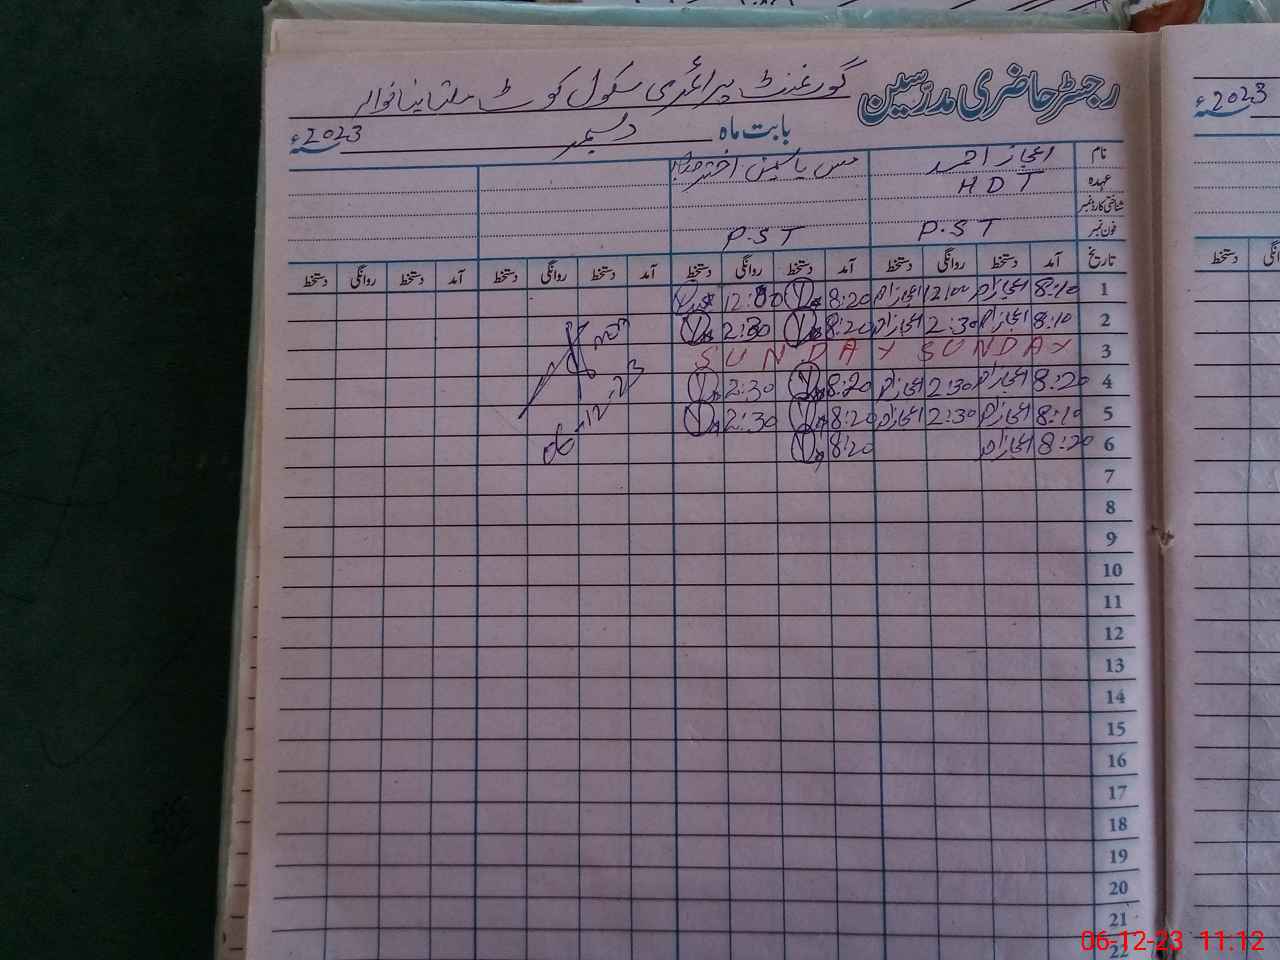 رجسٹر حاضری مدرسین گورنمنٹ پرائمری سکول کوٹ
بابت ماہ دسمبر 2023ء
2023ء
نام اعجاز احمد مس یاسمین اختر
عہدہ HDT
شناختی کارڈ نمبر
فون نمبر P.ST P.ST
تاریخ آمد دستخط روانگی دستخط آمد دستخط روانگی دستخط آمد دستخط روانگی دستخط آمد دستخط روانگی دستخط
1 8:10 اعجاز احمد 12:00 اعجاز احمد 8:20 12:00
2 8:10 اعجاز احمد 2:30 اعجاز احمد 8:20 2:30
3 SUNDAY SUNDAY
4 8:20 اعجاز احمد 2:30 اعجاز احمد 8:20 2:30
5 8:10 اعجاز احمد 2:30 اعجاز احمد 8:20 2:30
6 8:20 اعجاز احمد 8:20
06-12-23
7
8
9
10
11
12
13
14
15
16
17
18
19
20
21
22
06-12-23 11:12